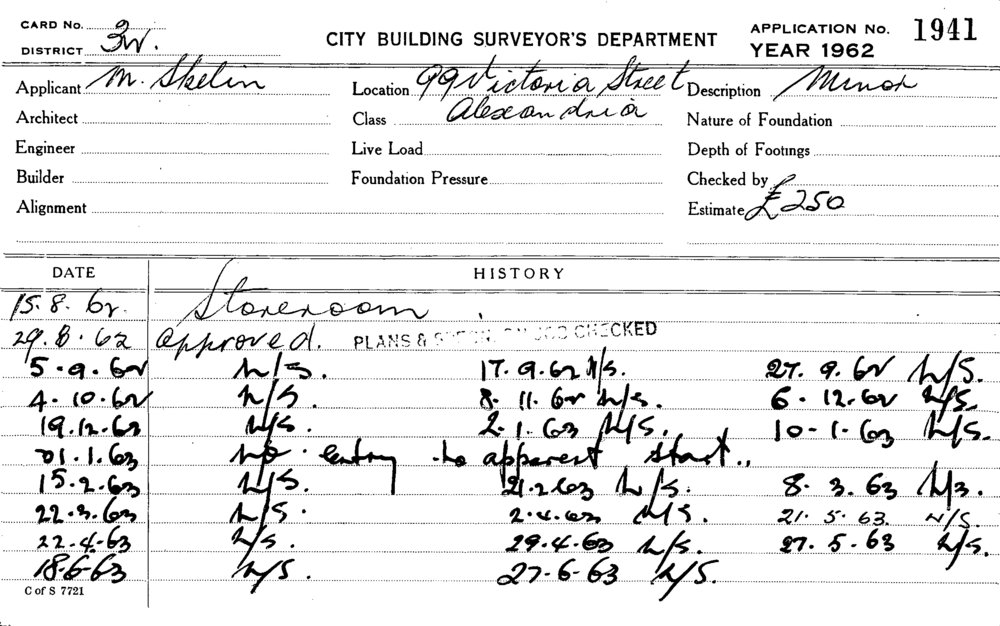 CARD No.
DISTRICT 3W.
CITY BUILDING SURVEYOR'S DEPARTMENT
APPLICATION No. 1941
YEAR 1962
Applicant M. Skelin Location 99 Victoria Street Description Minor
Architect Class Alexandria Nature of Foundation
Engineer Live Load Depth of Footings
Builder Foundation Pressure Checked by
Alignment Estimate £250
DATE HISTORY
15.8.62 Storeroom
29.8.62 Approved. PLANS & JOB CHECKED
5.9.62 N/S. 17.9.62 N/S. 27.9.62 N/S.
4.10.62 N/S. 8.11.62 N/S. 6.12.62 N/S.
19.12.62 N/S. 2.1.63 N/S. 10-1-63 N/S.
1.1.63 No entry no apperent start..
15.2.63 N/S. 21.2.63 N/S. 8.3.63 N/S.
22.3.63 N/S. 2.4.63 N/S. 21.5.63. N/S.
22.4.63 N/S. 29.4.63 N/S. 27.5.63 N/S.
18-6-63 N/S. 27-6-63 N/S.
C of S 7721